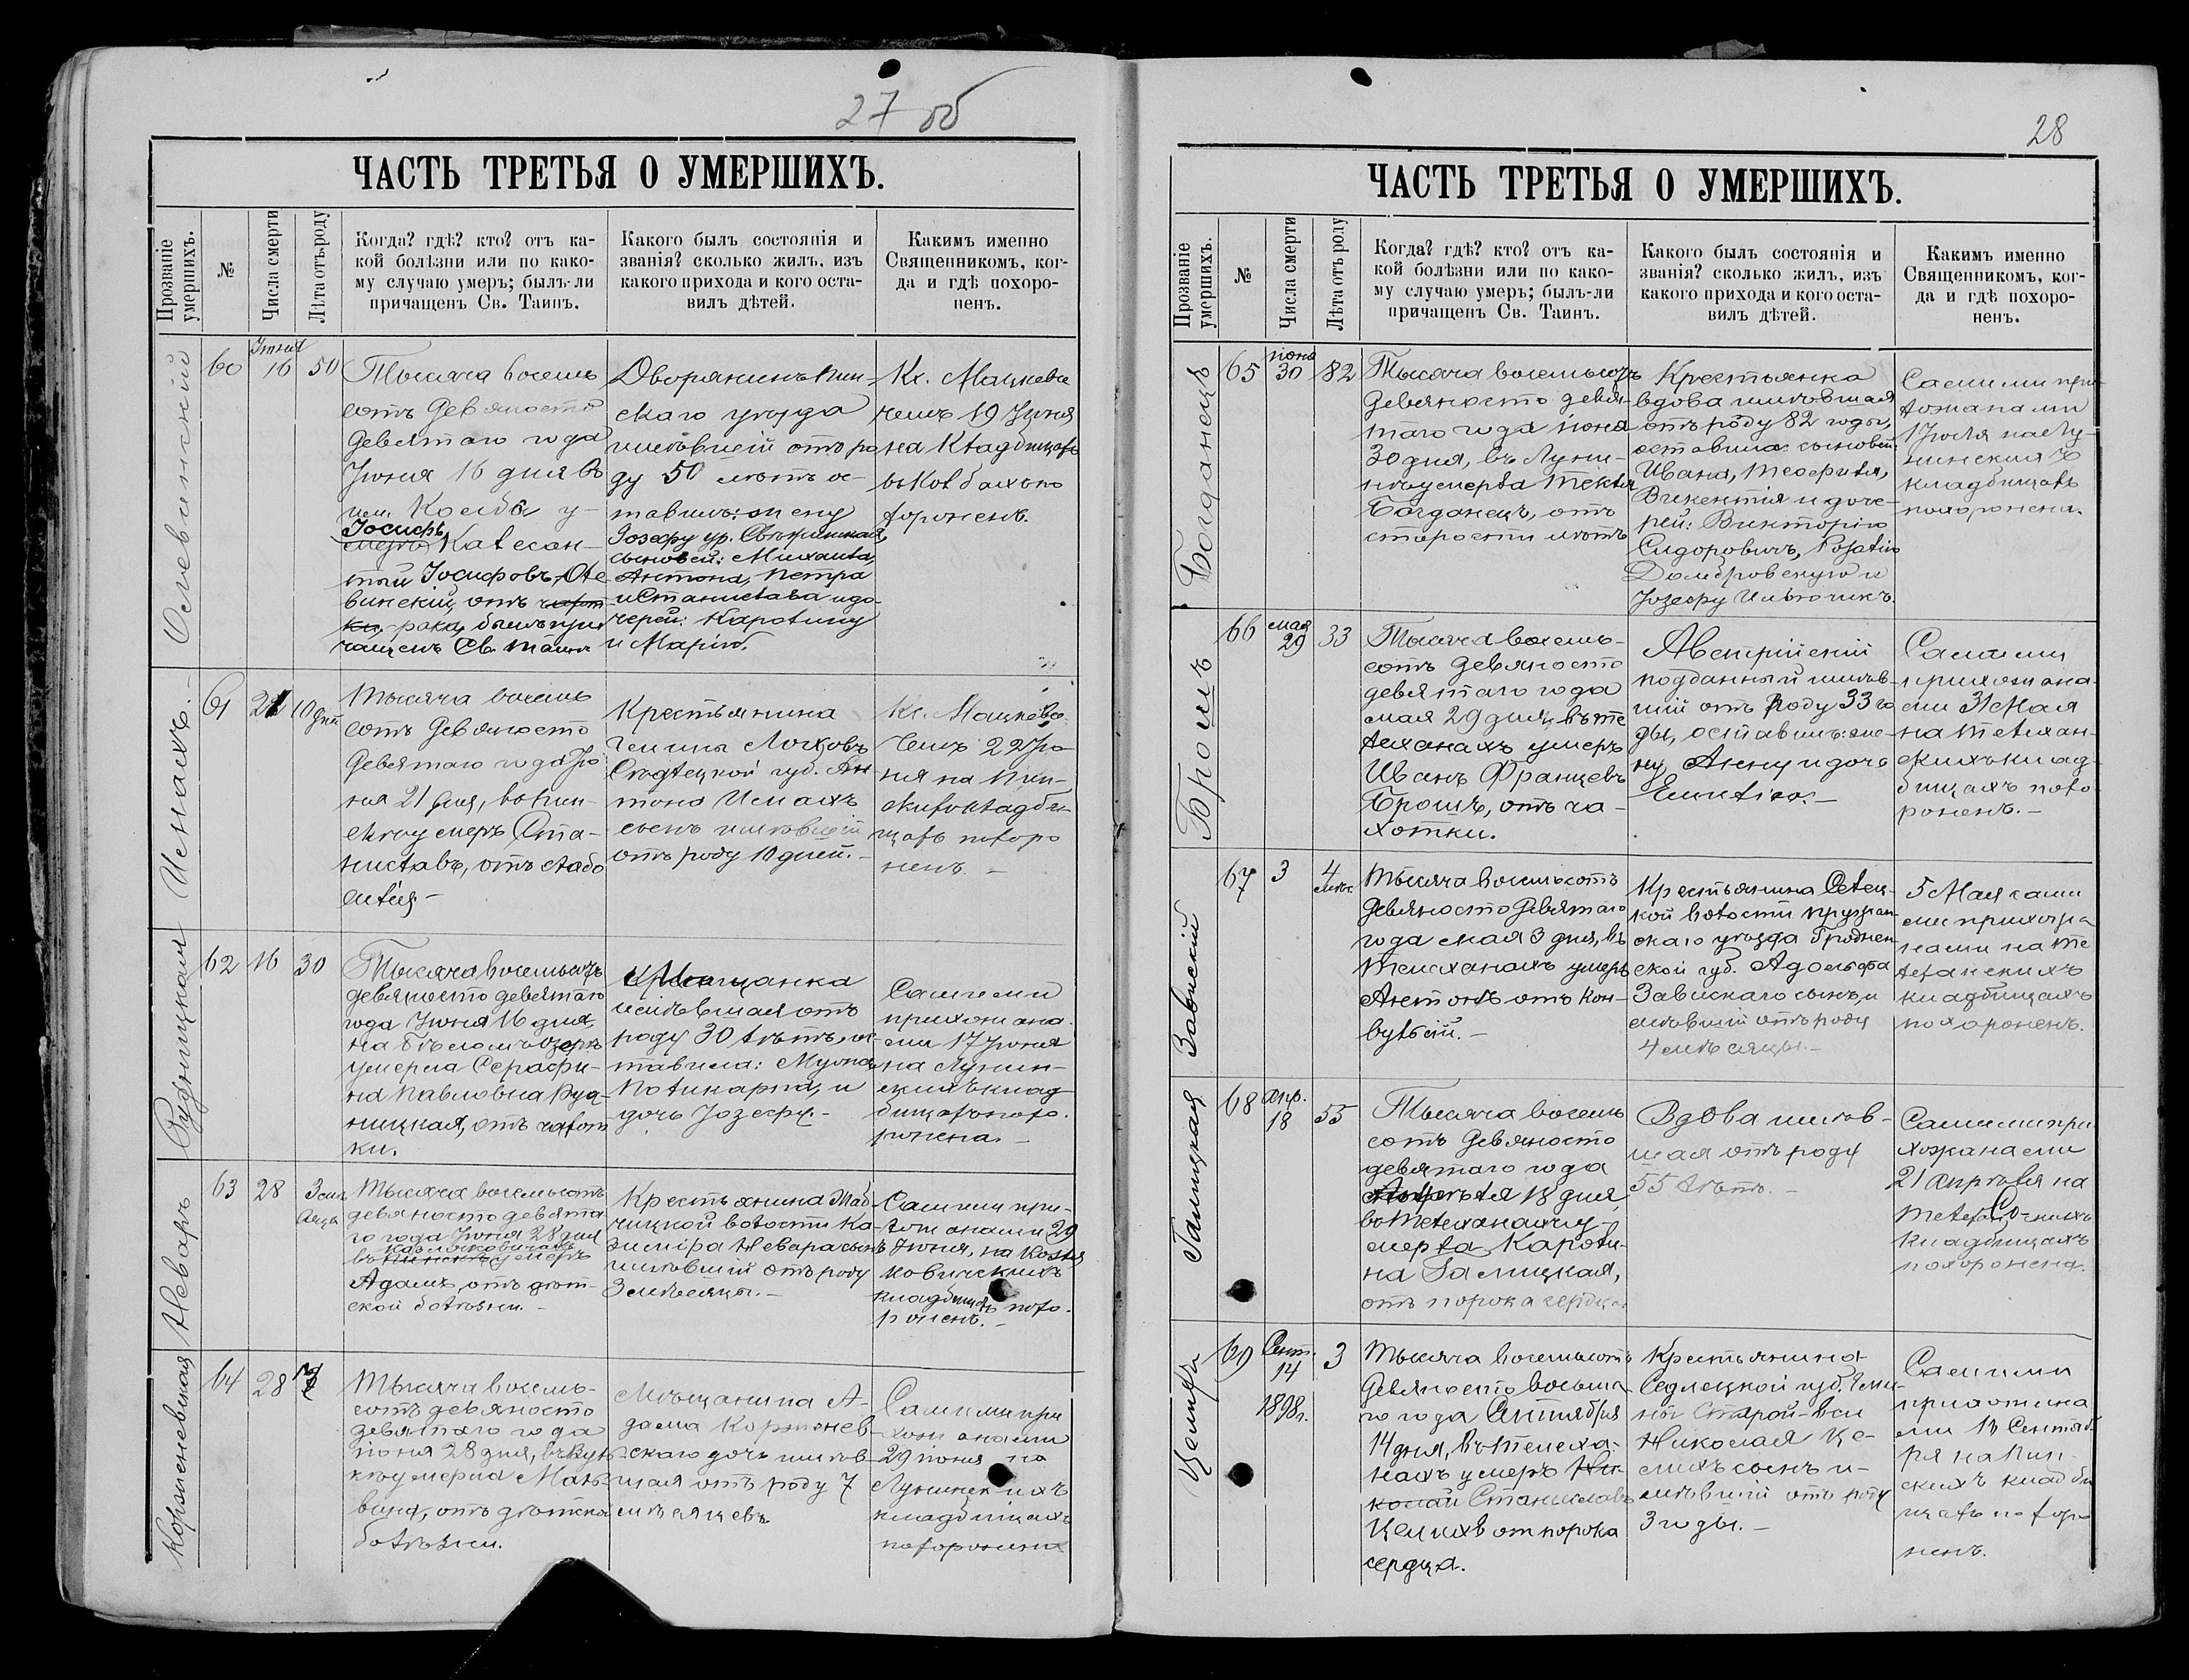 27 об
ЧАСТЬ ТРЕТЬЯ О УМЕРШИХЪ.
Прозваніе умершихъ.
№
Числа смерти
Лѣта отъ роду
Когда? гдѣ? кто? отъ ка-
кой болѣзни или по како-
му случаю умеръ; былъ-ли
причащенъ Св. Таинъ.
Какого былъ состоянія и
званія? сколько жилъ, изъ
какого прихода и кого оста-
вилъ дѣтей.
Какимъ именно
Священникомъ, ког-
да и гдѣ похоро-
ненъ.
60
Іюня
16
50
Тысяча восемь
сотъ девяносто
девятаго года
Іюня 16 дня въ
у-
Іосифъ
Іосифовъ Оле-
винскій, отъ
рака, былъ при
чащенъ Св. Таинъ
Дворянинъ Пин-
скаго уѣзда
имѣвшій отъ ро
ду 50 лѣтъ ос-
тавилъ: жену
Іозефу ур.
сыновей: Михаила,
Антона, Петра
и Станислава и до-
черей: Каролину
и Марію.
Кс. Мацкеви
чемъ 19 Іюня
на кладбищахъ
по
хороненъ.
Исмахъ.
61
21
10 дней
Тысяча восемь
сотъ девяносто
девятаго года Ію
ня 21 дня, въ Пин-
скѣ умеръ Ста-
ниславъ, отъ слабо
силія –
Крестьянина
гмины
губ. Ан
тона Исмахъ
сынъ имѣвшій
отъ роду 10 дней. –
Кс. Мацкеви
чемъ 22 Ію
ня на Пин-
скихъ кладби-
щахъ похоро
ненъ. –
62
16
30
Тысяча восемьсотъ
девяносто девятаго
года Іюня 16 дня,
на Бѣломъ озерѣ
умерла Серафи-
на Павловна Руд-
ницкая, отъ чахот
ки.
имѣвшая отъ
роду 30 лѣтъ, ос
тавила: мужа
Поликарпа, и
дочь Іозефу. –
Самими
прихожана
ми 17 Іюня
на Лунин-
скихъ клад
бищахъ похо-
ронена. –
Неваръ
63
28
3 мѣ
сяца
Тысяча восемьсотъ
девяносто девята
го года Іюня 28 дня
умеръ
Адамъ, отъ дѣт-
ской болѣзни. –
Крестьянина
волости Ка
зиміра Невара сынъ
имѣвшій отъ роду
3 мѣсяцы. –
Самими при-
хожанами 29
Іюня, на
кладбищахъ похо-
роненъ. –
64
28
Тысяча восемь-
сотъ девяносто
девятаго года
іюня 28 дня,
умерла Маль-
вина, отъ дѣтской
болѣзни.
Мѣщанина А-
дама Корженев-
скаго дочь имѣв-
шая отъ роду 7
мѣсяцевъ
Самими при
хожанами
29 іюня на
Лунинскихъ
кладбищахъ
похоронена
28
ЧАСТЬ ТРЕТЬЯ О УМЕРШИХЪ.
Прозваніе умершихъ.
№
Числа смерти
Лѣта отъ роду
Когда? гдѣ? кто? отъ ка-
кой болѣзни или по како-
му случаю умеръ; былъ-ли
причащенъ Св. Таинъ.
Какого былъ состоянія и
званія? сколько жилъ, изъ
какого прихода и кого оста-
вилъ дѣтей.
Какимъ именно
Священникомъ, ког-
да и гдѣ похоро-
ненъ.
Богданецъ
65
іюня
30
82
Тысяча восемьсотъ
девяносто девя-
таго года іюня
30 дня, въ Луни-
нѣ умерла Текля
Богданецъ, отъ
старости лѣтъ
Крестьянка
вдова имѣвшая
отъ роду 82 годы,
оставила сыновей:
Ивана, Теофила,
Викентія и доче-
рей: Викторію
Сидоровичъ, Розалію
Домбровскую и
Іозефу
Самими при-
хожанами
1 Іюля на Лу-
нинскихъ
кладбищахъ
похоронена.
Брошъ
66
мая
29
33
Тысяча восемь-
сотъ девяносто
девятаго года
мая 29 дня, въ Те
леханахъ умеръ
Иванъ Францевъ
Брошъ, отъ ча-
хотки.
Австрійскій
подданный имѣв-
шій отъ роду 33 го
ды, оставилъ: же-
ну Анну и дочь
Емилію. –
Самими
прихожана-
ми 31 Мая
на Телехан-
скихъ клад-
бищахъ похо-
роненъ. –
Завискій
67
3
4
мѣс.
Тысяча восемьсотъ
девяносто девятаго
года мая 3 дня, въ
Телеханахъ умеръ
Антонъ отъ кон-
вульсій. –
Крестьянина Селец-
кой волости Пружан-
скаго уѣзда Гроднен-
ской губ. Адольфа
Завискаго сынъ, и
мѣвшій отъ роду
4 мѣсяцы. –
5 Мая сами
ми прихожа
нами на Те
леханскихъ
кладбищахъ
похороненъ.
Галицкая
68
апр.
18
55
Тысяча восемь
сотъ девяносто
девятаго года
Апрѣля 18 дня,
въ Телеханахъ у-
мерла Кароли-
на Галицкая,
отъ порока сердца
Вдова имѣв-
шая отъ роду
55 лѣтъ. –
Самими при
хожанами
21 апрѣля на
Телеханскихъ
кладбищахъ
похоронена.
Целихъ
69
Сент.
14
1898 г.
3
Тысяча восемьсотъ
девяносто восьма
го года Сентября
14 дня, въ Телеха-
нахъ умеръ Ни-
колай Станиславъ
Целихъ от порока
сердца.
Крестьянина
Седлецкой губ. Гми-
ны Старой-вси
Николая Це-
лихъ сынъ и-
мѣвшій отъ роду
3 годы. –
Самими
прихожана
ми Сентяб
ря на Пин-
скихъ кладби
щахъ похоро
ненъ.